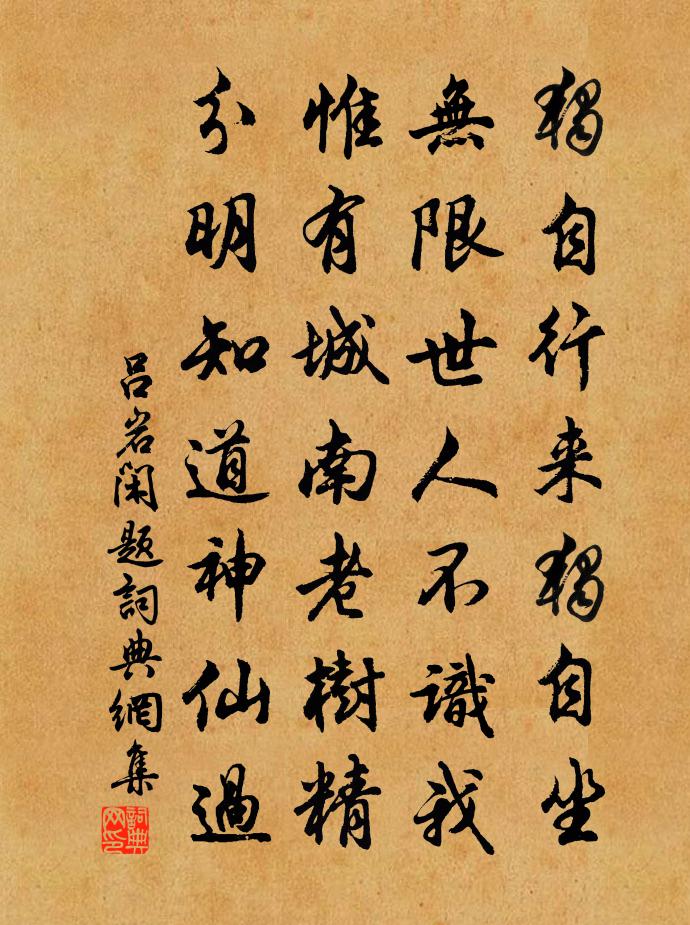 獨自行来獨自坐
無限世人不識我
惟有城南老樹精
分明知道神仙過
吕岩閑題詞典網集
詞典
网印